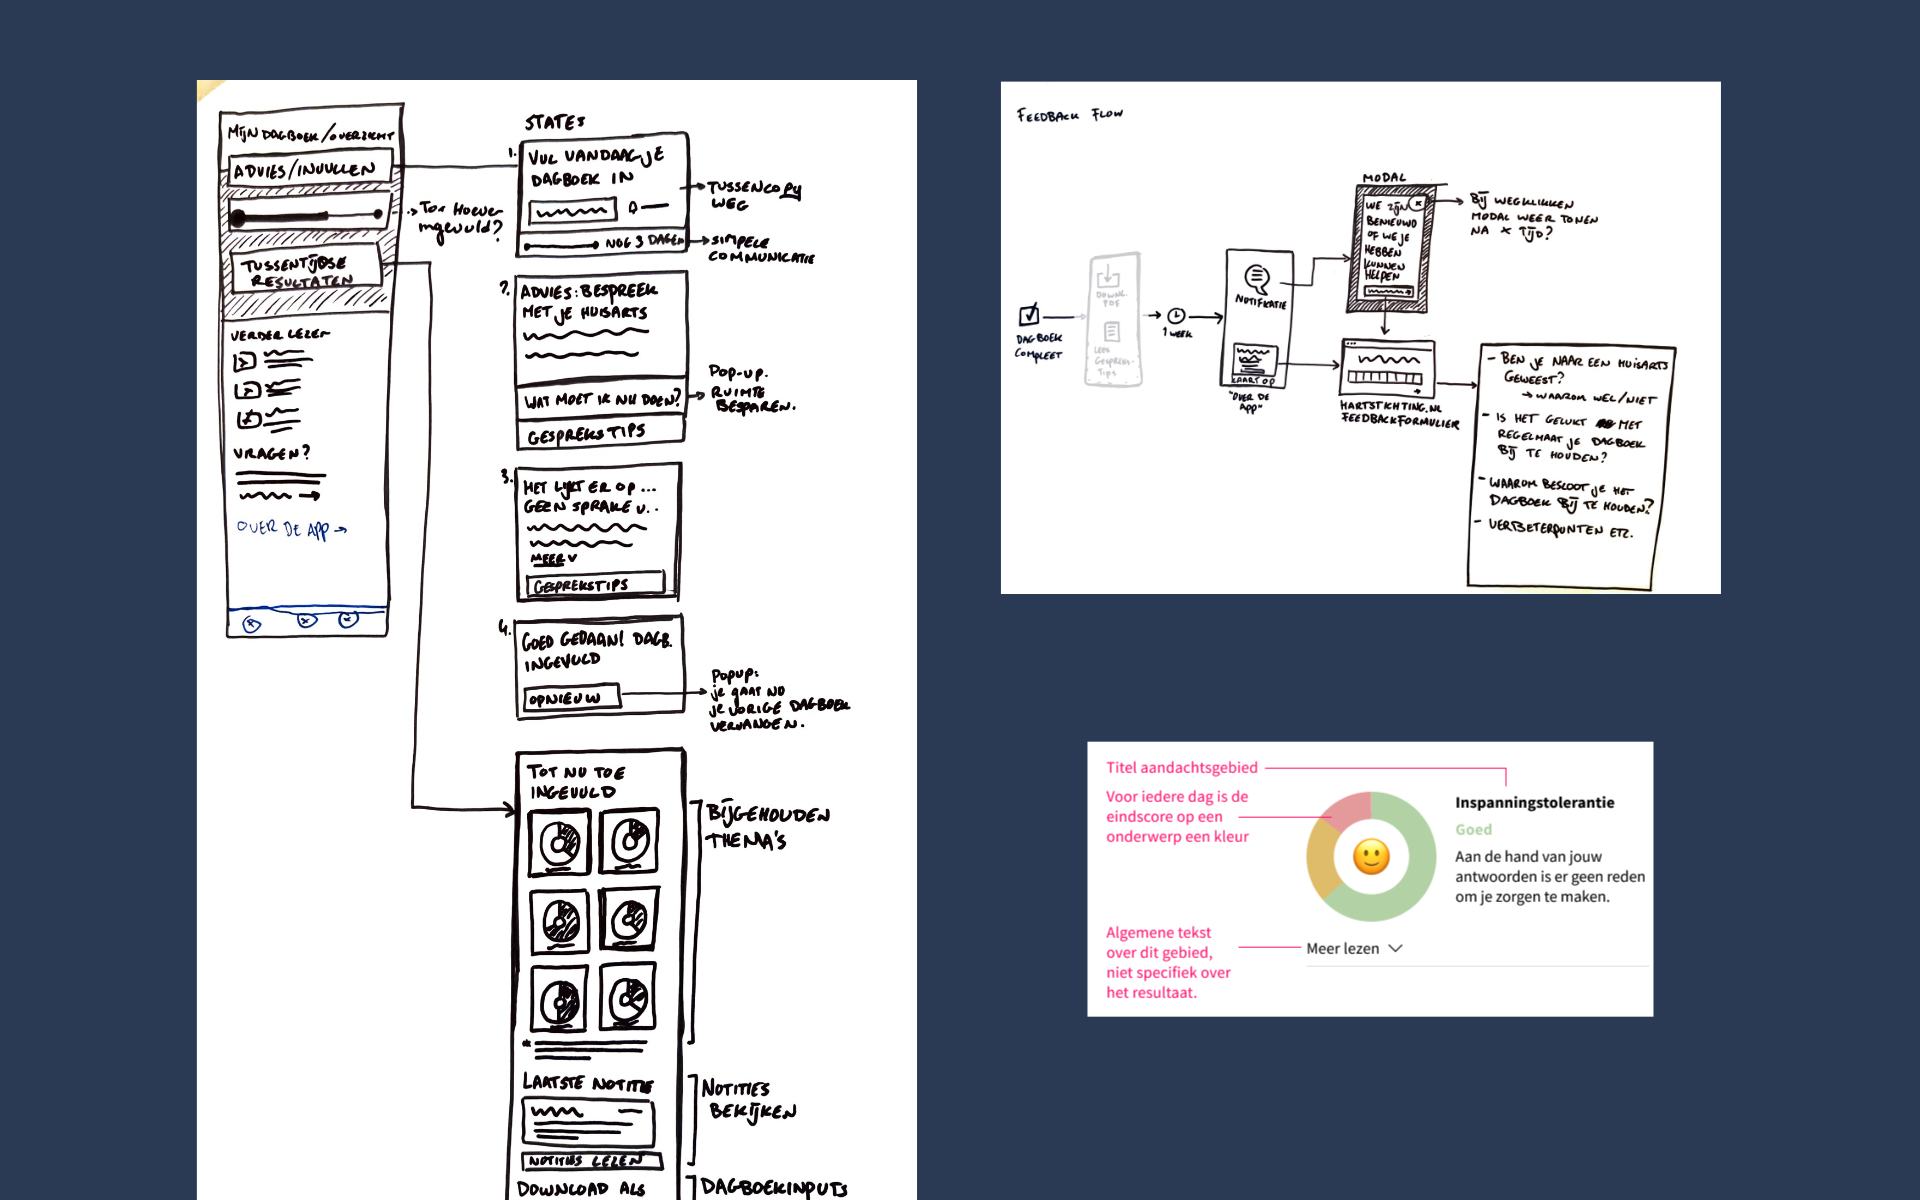 MIJN DAGBOEK/OVERZICHT
ADVIES/INVULLEN
TUSSENTIJDSE
RESULTATEN
VERDER LEZEN
VRAGEN?
OVER DE APP →
→ Tot Hoever
ingevuld?
STATES
1.
VUL VANDAAG JE
DAGBOEK IN
NOG 3 DAGEN
→ TUSSENCOPY
WEG
→ SIMPELE
COMMUNICATIE
2.
ADVIES: BESPREEK
MET JE HUISARTS
WAT MOET IK NU DOEN?
GESPREKSTIPS
POP-UP.
RUIMTE
BESPAREN.
3.
HET LIJKT ER OP ...
GEEN SPRAKE V..
MEER V
GESPREKSTIPS
4.
GOED GEDAAN! DAGB.
INGEVULD
OPNIEUW
POPUP:
JE GAAT NU
JE VORIGE DAGBOEK
VERVANGEN.
TOT NU TOE
INGEVULD
BIJGEHOUDEN
THEMA'S
*
LAATSTE NOTITIE
NOTITIES LEZEN
NOTITIES
BEKIJKEN
DOWNLOAD ALS
DAGBOEKINPUTS
FEEDBACK FLOW
DAGBOEK
COMPLEET
DOWNL.
PDF
LEES
GESPREKS-
TIPS
1 WEEK
NOTIFICATIE
KAART OP
"OVER DE
APP"
MODAL
WE ZIJN
BENIEUWD
OF WE JE
HEBBEN
KUNNEN
HELPEN
BIJ WEGKLIKKEN
MODAL WEER TONEN
NA X TIJD?
HARTSTICHTING.NL
FEEDBACKFORMULIER
- BEN JE NAAR EEN HUISARTS
GEWEEST?
→ WAAROM WEL/NIET
- IS HET GELUKT MET
REGELMAAT JE DAGBOEK
BIJ TE HOUDEN?
- WAAROM BESLOOT JE HET
DAGBOEK BIJ TE HOUDEN?
- VERBETERPUNTEN ETC.
Titel aandachtsgebied
Voor iedere dag is de
eindscore op een
onderwerp een kleur
Algemene tekst
over dit gebied,
niet specifiek over
het resultaat.
Inspanningstolerantie
Goed
Aan de hand van jouw
antwoorden is er geen reden
om je zorgen te maken.
Meer lezen